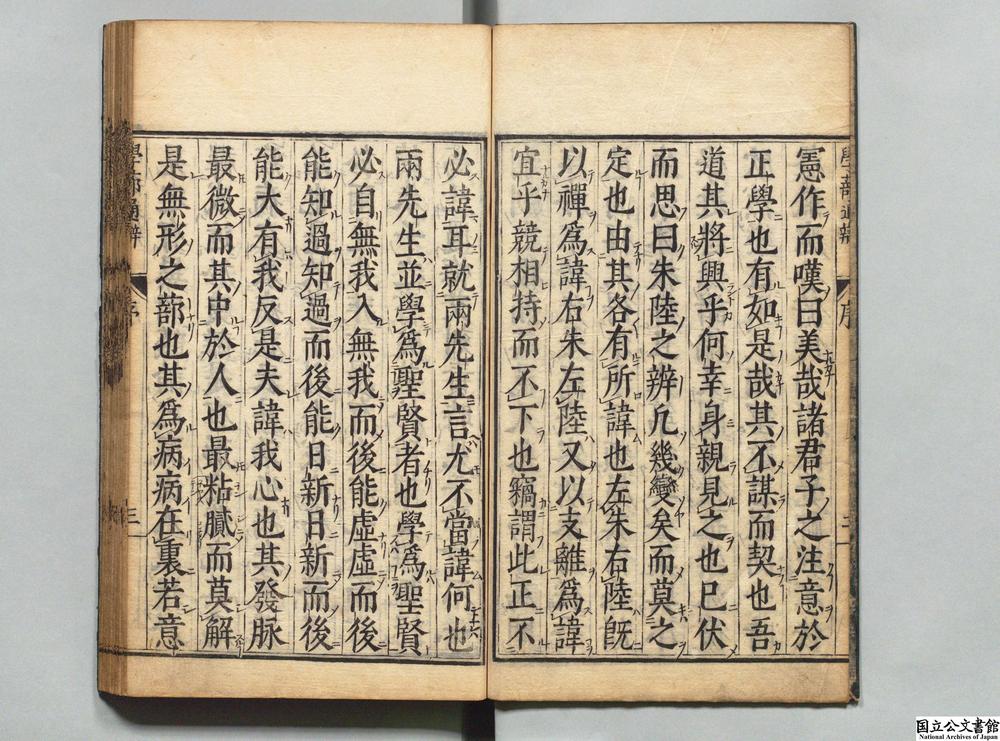 憲作而嘆曰美哉諸君子之注意於
正學也有如是哉其不謀而契也吾
道其將興乎何幸身親見之也已伏
而思曰朱陸之辨凡幾變矣而莫之
定也由其各有所諱也左朱右陸旣
以禪爲諱右朱左陸又以支離爲諱
宜乎競相持而不下也竊謂此正不
必諱耳就兩先生言尤不當諱何也
兩先生並學爲聖賢者也學爲聖賢
必自無我入無我而後能虛虛而後
能知過知過而後能日新日新而後
能大有我反是夫諱我心也其發脉
最微而其中於人也最粘膩而莫解
是無形之蔀也其爲病病在裏若意
學蔀通辨
序
三
国立公文書館
National Archives of Japan